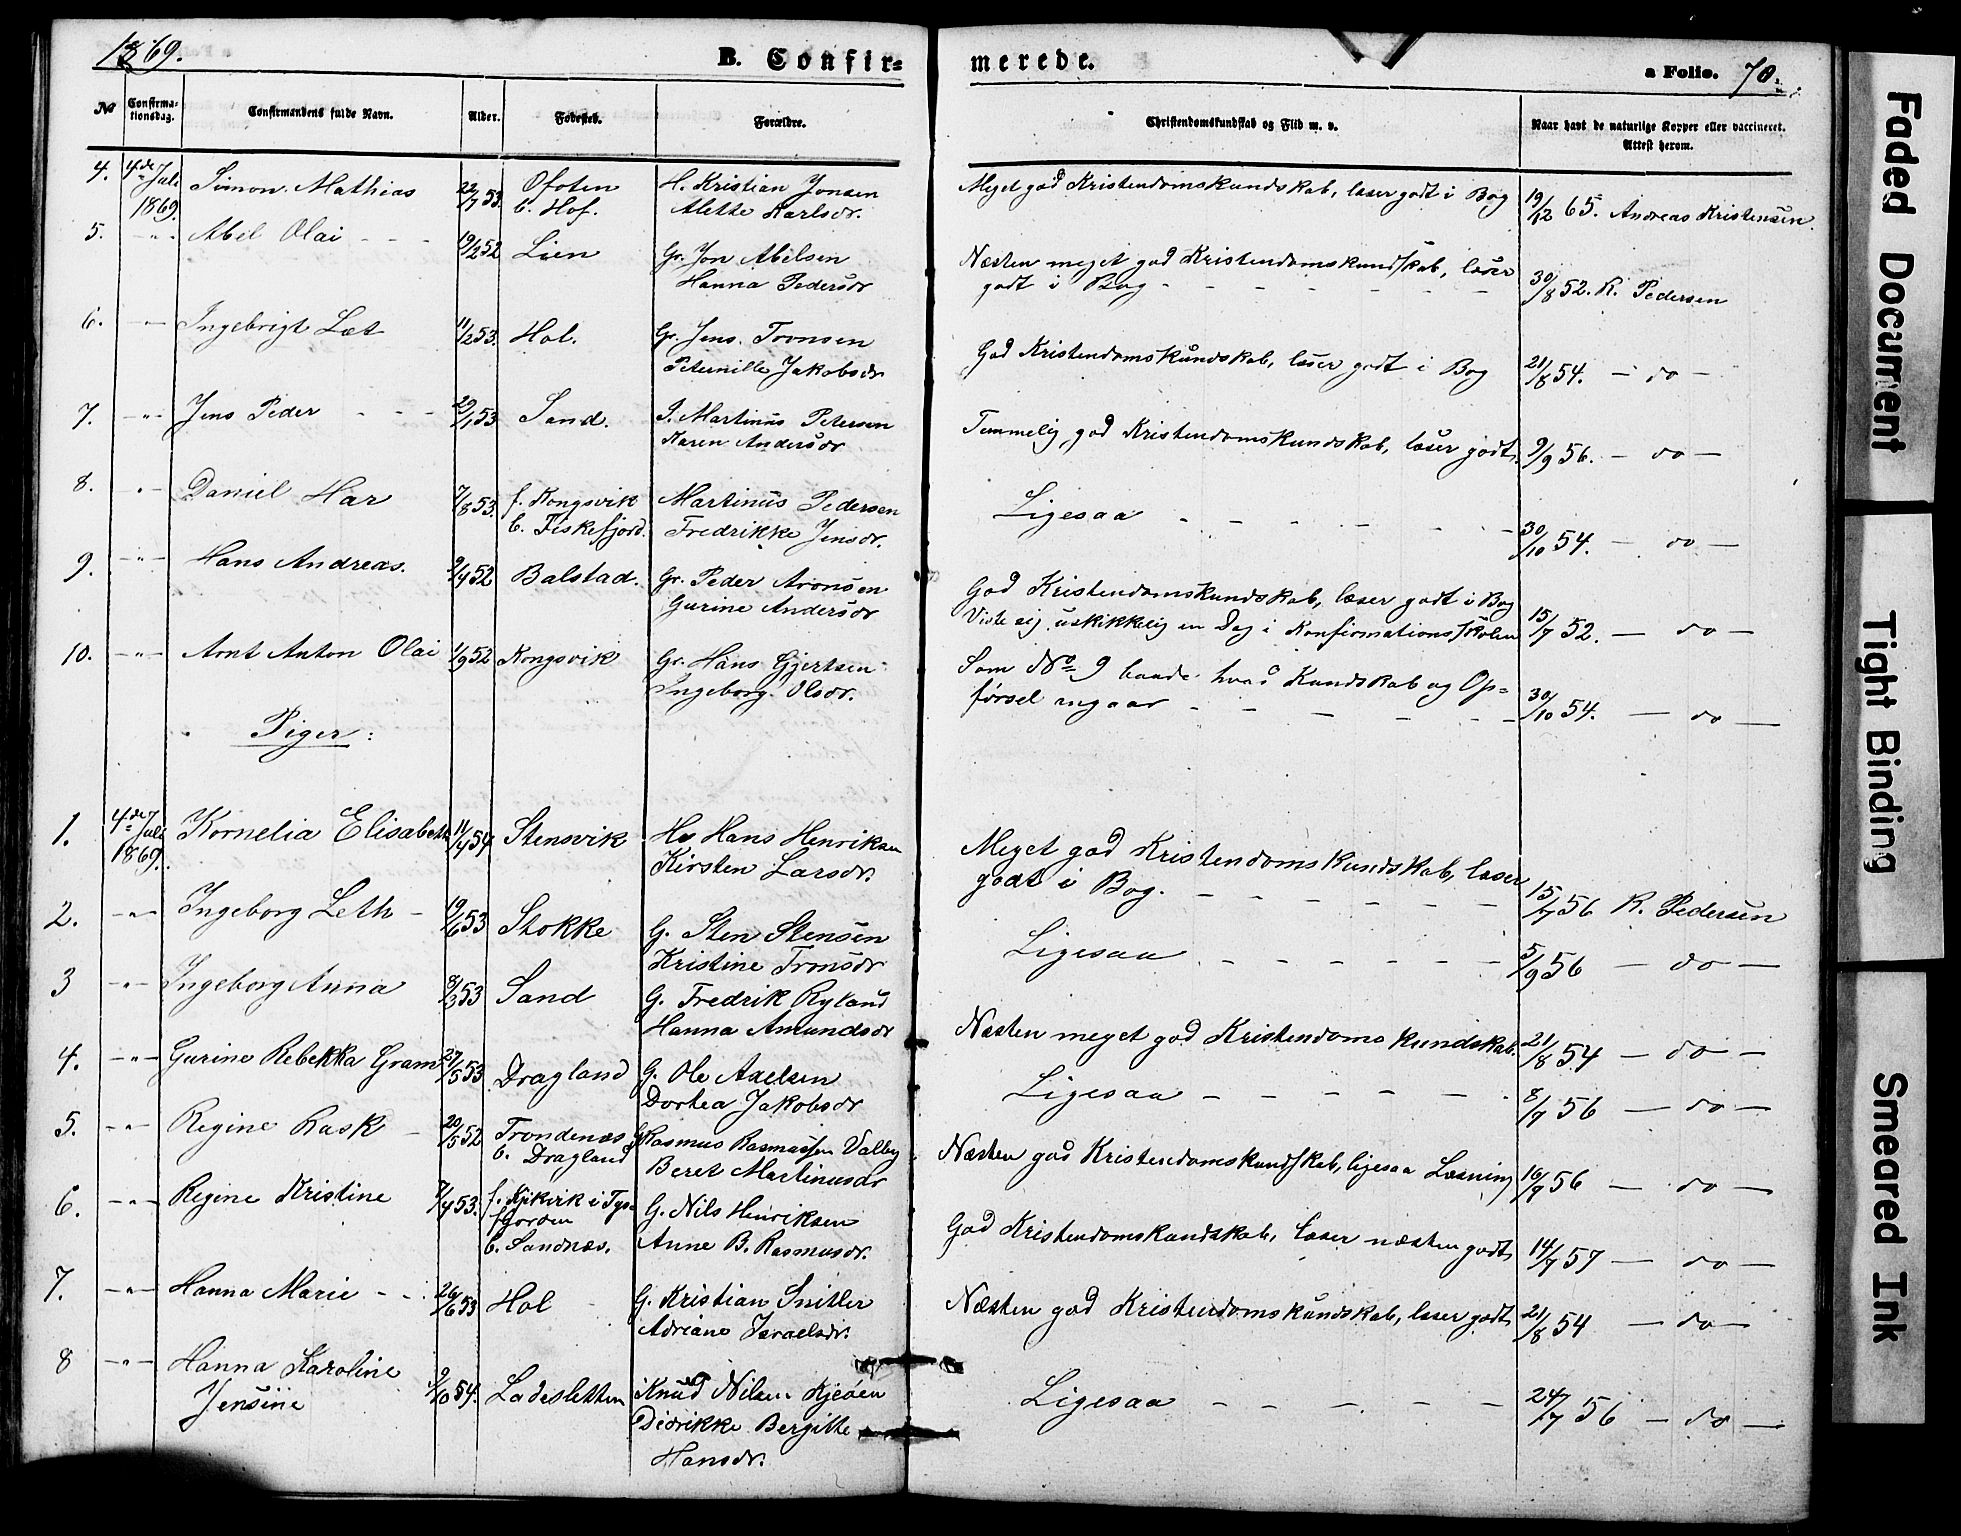 1869. B. Confir= merede. a Folio. 70.
No Confirma-tionsdag. Confirmandens fulde Navn. Alder. Fødested. Forældre. Christendomskundskab og Flid m. v. Naar havt de naturlige Kopper eller vaccineret. Attest herom.
4. 4de Juli 1869. Simon Mathias 22/7 53. Ofoten b. Hof. H. Kristian Jonsen Alette Karlsdr. Meget god Kristendomskundskab, læser godt i Bog 19/12 65. Andreas Kristensen.
5. -"- Abel Olai - - - 19/2 52 Lien Gr. Jon Abelsen Hanna Pedersdr Næsten meget god Kristendomskundskab, læser godt i Bog - - - - - - 30/8 52. R. Pedersen
6. -"- Ingebrigt Læt 11/2 53. Hol. Gr. Jens Tronsen Peternille Jakobsdr God Kristendomskundskab, læser godt i Bog 21/8 54. - do -
7. -"- Jens Peder - - - 29/1 53 Sand. I. Martinus Petersen Karen Andersdr Temmelig god Kristendomskundskab, læser godt. 9/9 56. - do -
8. " Daniel Har 7/8 53. f. Kongsvik b. Fiskefjord. Martinus Pedersen Fredrikke Jensdr. Ligesaa - - - - - - 30/10 54. - do -
9. -"- Hans Andreas. 9/4 52 Balstad. Gr. Peder Aronsen Gurine Andersdr God Kristendomskundskab, læser godt i Bog Viste sig uskikkelig en Dag i Konfirmationsskolen 15/7 52. - do -
10. -"- Arnt Anton Olai 1/9 52 Kongsvik Gr. Hans Gjertsen Ingeborg Olsdr. Som No 9 baade hvad Kundskab og Op= førsel angaar - - - - - 30/10 54. - do -
Piger:
1. 4de Juli 1869. Kornelia Elisabeth 11/4 54 Stensvik Hs Hans Henriksen Kirsten Larsdr. Meget god Kristendomskundskab, læser godt i Bog. - - - - - - 15/7 56 R. Pedersen
2. -"- Ingeborg Leth - 19/6 53 Stokke G. Sten Stensen Kristine Tronsdr Ligesaa - - - - - - 5/9 56 - do -
3 -"- Ingeborg Anna 8/3 53 Sand G. Fredrik Ryland Hanna Amundsdr Næsten meget god Kristendomskundskab. 21/8 54 - do -
4. -"- Gurine Rebekka Gram 27/5 53 Dragland G. Ole Axelsen Dorhea Jakobsdr Ligesaa - - - - - 8/9 56 - do -
5. -"- Regine Rask - 20/5 52 Trondenæs b. Dragland G Rasmus Rasmussen Valley Beret Martinusdr Næsten god Kristendomskundskab, ligesaa Læsning 16/9 56 - do -
6. -"- Regine Kristine 7/4 53. f. Kjikvik i Tys= fjorden b. Sandnæs. G. Nils Henriksen Anne B. Rasmusdr. God Kristendomskundskab, læser næsten godt 14/7 57 - do -
7. -"- Hanna Marie - - 26/6 53 Hol - G. Kristian Snitler Adriane Israelsdr. Næsten god Kristendomskundskab, læser godt, 21/8 54 - do -
8 -"- Hanna Karoline Jensine 9/10 54. Ladesletten Knud Nilsen Kjeøen Didrikke Bergitte Hansdr. Ligesaa - - - - - 24/7 56 - do -
Faded Document
Tight Binding
Smeared Ink